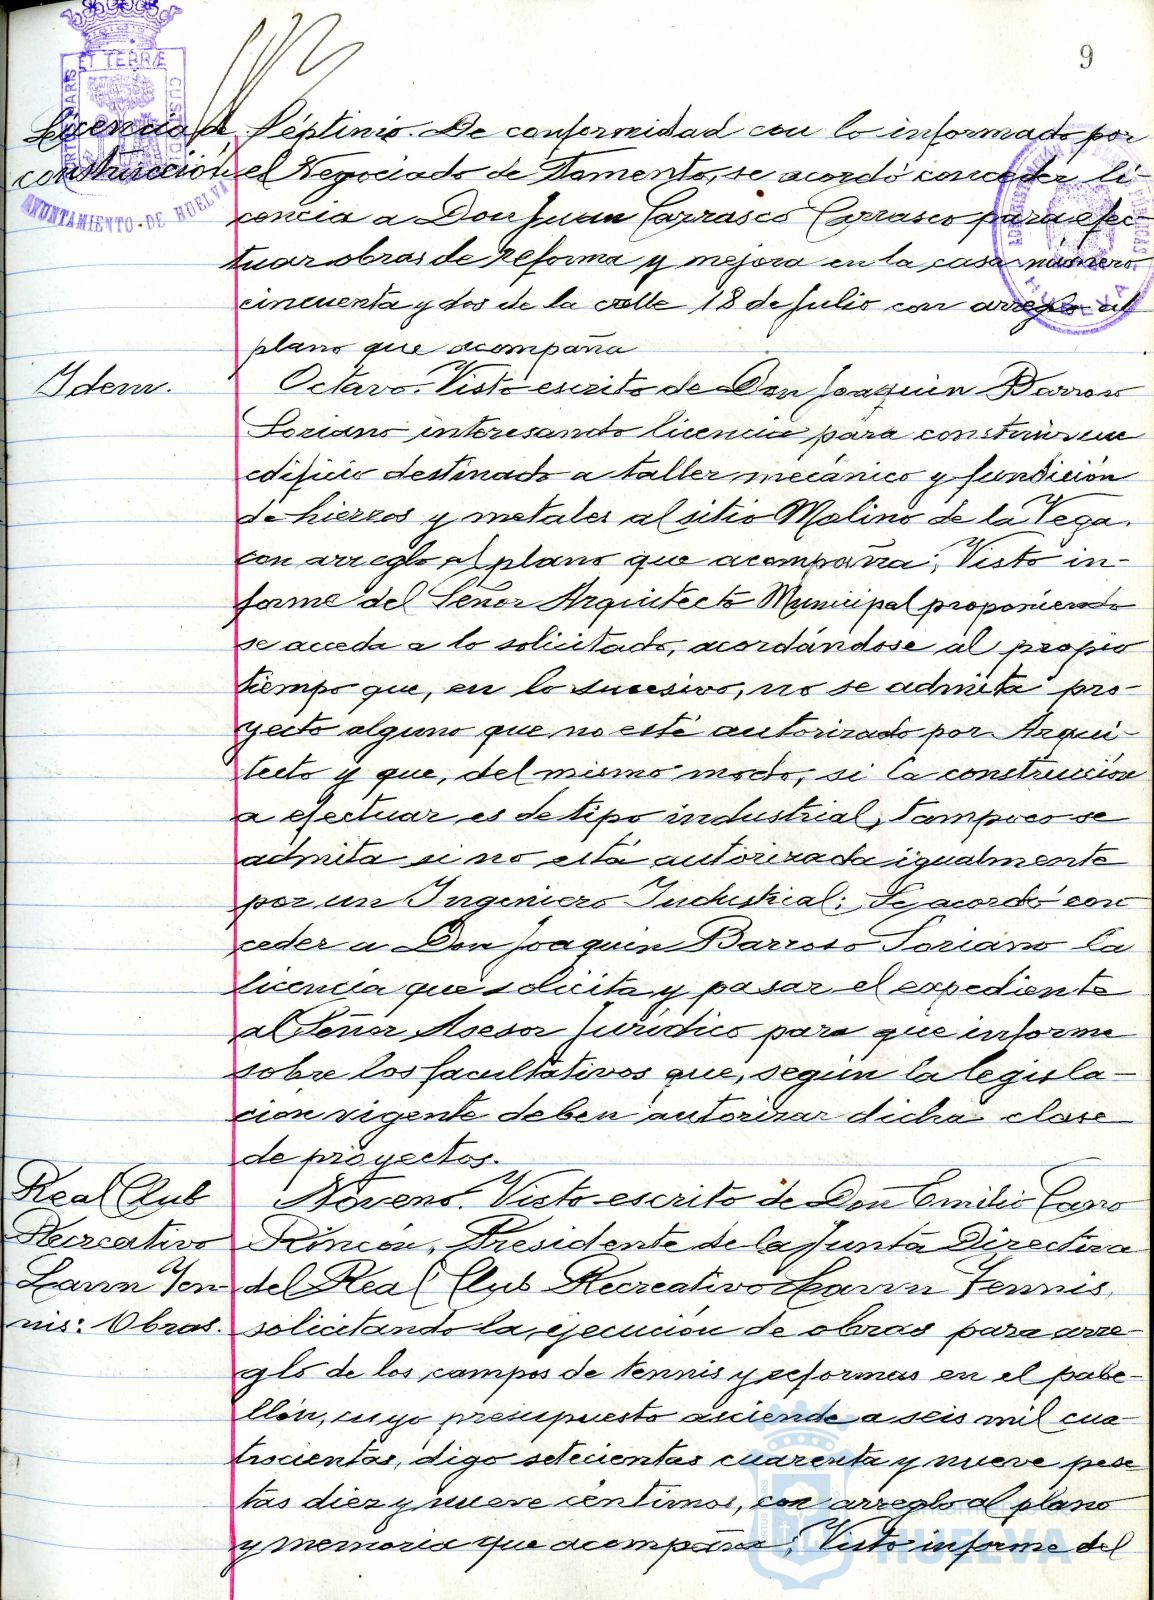 9
PORTUS MARIS ET TERRÆ CUSTODIA
AYUNTAMIENTO·DE HUELVA
HUELVA
Licencia de
construcción
Séptimo. De conformidad con lo informado por
el Negociado de Fomento, se acordó conceder li-
cencia a Don Juan Carrasco Carrasco para efec-
tuar obras de reforma y mejora en la casa número
cincuenta y dos de la calle 18 de Julio con arreglo al
plano que acompaña
Idem.
Octavo. Visto escrito de Don Joaquin Barroso
Soriano interesando licencia para construir un
edificio destinado a taller mecánico y fundición
de hierros y metales al sitio Molino de la Vega.
con arreglo al plano que acompaña; Visto in-
forme del Señor Arquitecto Municipal proponiendo
se acceda a lo solicitado, acordándose al propio
tiempo que, en lo sucesivo, no se admita pro-
yecto alguno que no esté autorizado por Arqui-
tecto y que, del mismo modo, si la construcción
a efectuar es de tipo industrial, tampoco se
admita si no está autorizada igualmente
por un Ingeniero Industrial; Se acordó con
ceder a Don Joaquin Barroso Soriano la
licencia que solicita y pasar el expediente
al Señor Asesor Jurídico para que informe
sobre los facultativos que, según la legisla-
ción vigente deben autorizar dicha clase
de proyectos.
Real Club
Recreativo
Lawn Ten
nis: Obras.
Noveno. Visto escrito de Don Emilio Cano
Rincón, Presidente de la Junta Directiva
del Real Club Recreativo Lawn Tennis,
solicitando la ejecución de obras para arre-
glo de los campos de tennis y reformas en el pabe-
llón, cuyo presupuesto asciende a seis mil cua-
trocientas, digo setecientas cuarenta y nueve pese
tas diez y nueve céntimos, con arreglo al plano
y memoria que acompaña; Visto informe del
Ayuntamiento de
HUELVA